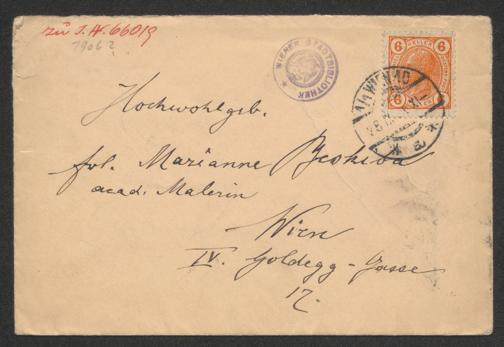 zu I.N. 66019
1906?
WIENER STADTBIBLIOTHEK
6 HELLER 6
6 6
WIEN
Hochwohlgeb.
frl. Marianne
acad. Malerin
Wien
IV. Goldegg-Gasse
17.